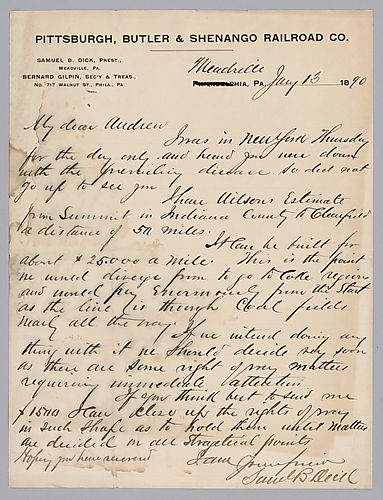 PITTSBURGH, BUTLER & SHENANGO RAILROAD CO.
SAMUEL B. DICK, PREST.,
MEADVILLE, PA.
BERNARD GILPIN, SEC'Y & TREAS.,
NO. 717 WALNUT ST., PHILA., PA.
Meadville
PHILADELPHIA, PA. Jany 13 1890
My dear Andrew
I was in New York Thursday
for the day only and heard you were down
with the prevailing disease so did not
go up to see you
I have Wilsons Estimate
from Summit in Indiana County to Clearfield
a distance of 50 miles.
It can be built for
about $25000 a mile. This is the point
we would diverge from to go to Coke regions
and would pay Enormously from the Start
as the line is through Coal fields
nearly all the way.
If we intend doing any
thing with it we should decide very soon
as there are some right of way matters
requiring immediate attention
If you think best to send me
$1500 I can close up the rights of way
in such shape as to hold them until matters
are decided on all Strategical points
Hoping you have recovered
I am Your friend
Samel B Dick